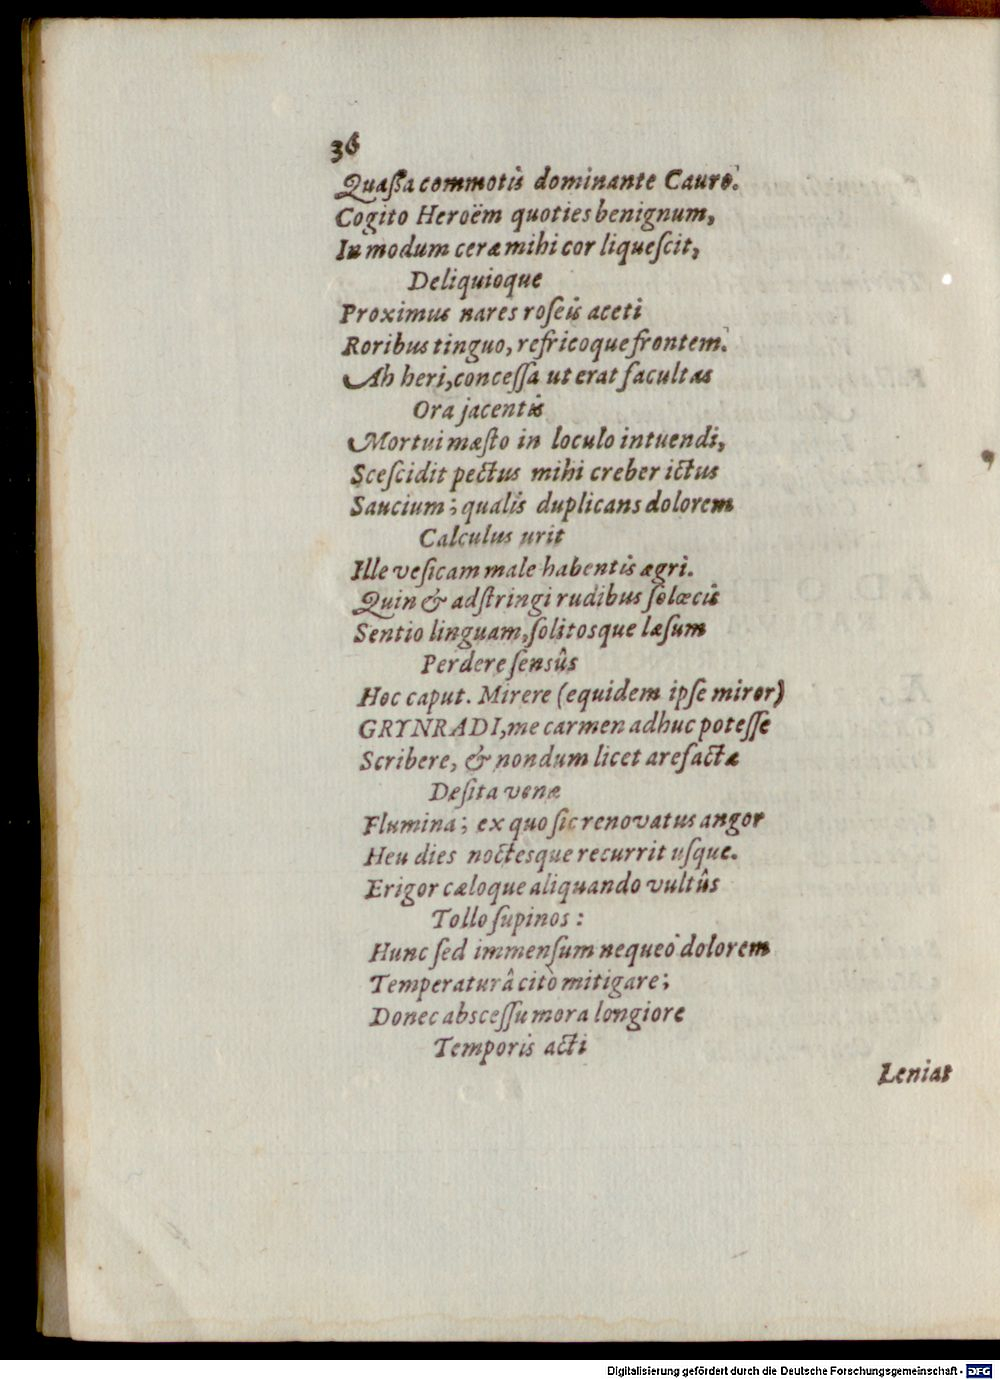 36
Quaſſa commotis dominante Cauro.
Cogito Heroëm quoties benignum,
In modum ceræ mihi cor liqueſcit,
Deliquioque
Proximus nares roſeis aceti
Roribus tinguo, refricoque frontem.
Ah heri, conceſſa ut erat facultas
Ora jacentis
Mortui mæſto in loculo intuendi,
Sceſcidit pectus mihi creber ictus
Saucium; qualis duplicans dolorem
Calculus urit
Ille veſicam male habentis ægri.
Quin & adſtringi rudibus ſolœcis
Sentio linguam, ſolitosque læſum
Perdere ſensûs
Hoc caput. Mirere (equidem ipſe miror)
GRYNRADI, me carmen adhuc poteſſe
Scribere, & nondum licet arefactæ
Deſita venæ
Flumina; ex quo ſic renovatus angor
Heu dies noctesque recurrit uſque.
Erigor cæloque aliquando vultûs
Tollo ſupinos:
Hunc ſed immenſum nequeo dolorem
Temperaturâ citò mitigare;
Donec abſceſſu mora longiore
Temporis acti
Leniat
Digitalisierung gefördert durch die Deutsche Forschungsgemeinschaft - DFG